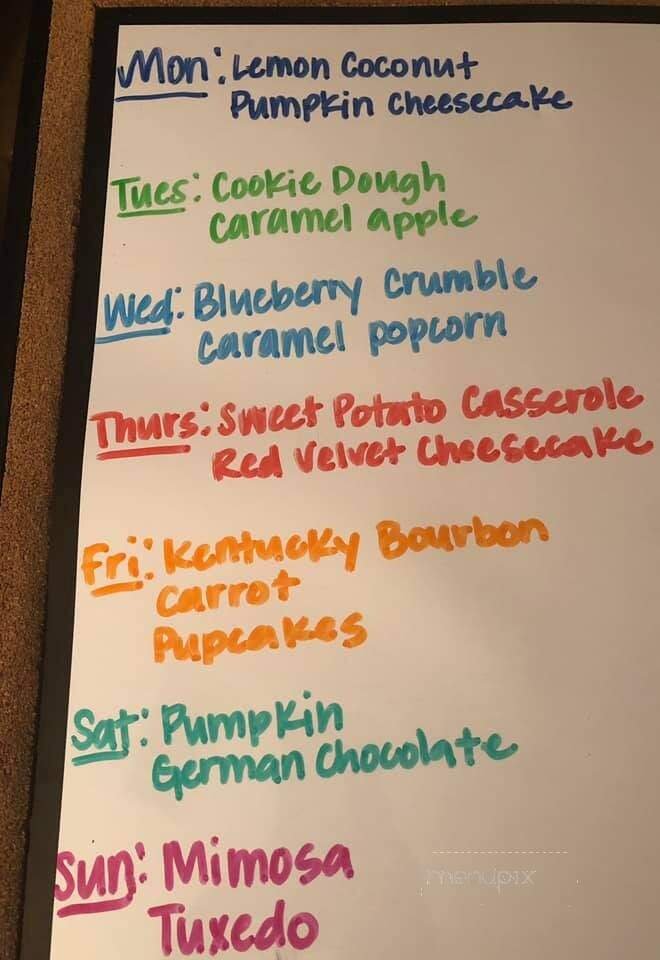 Mon: Lemon Coconut
Pumpkin Cheesecake
Tues: Cookie Dough
Caramel apple
Wed: Blueberry Crumble
Caramel popcorn
Thurs: Sweet Potato Casserole
Red Velvet Cheesecake
Fri: Kentucky Bourbon
Carrot
Pupcakes
Sat: Pumpkin
German Chocolate
Sun: Mimosa
Tuxedo
menupix